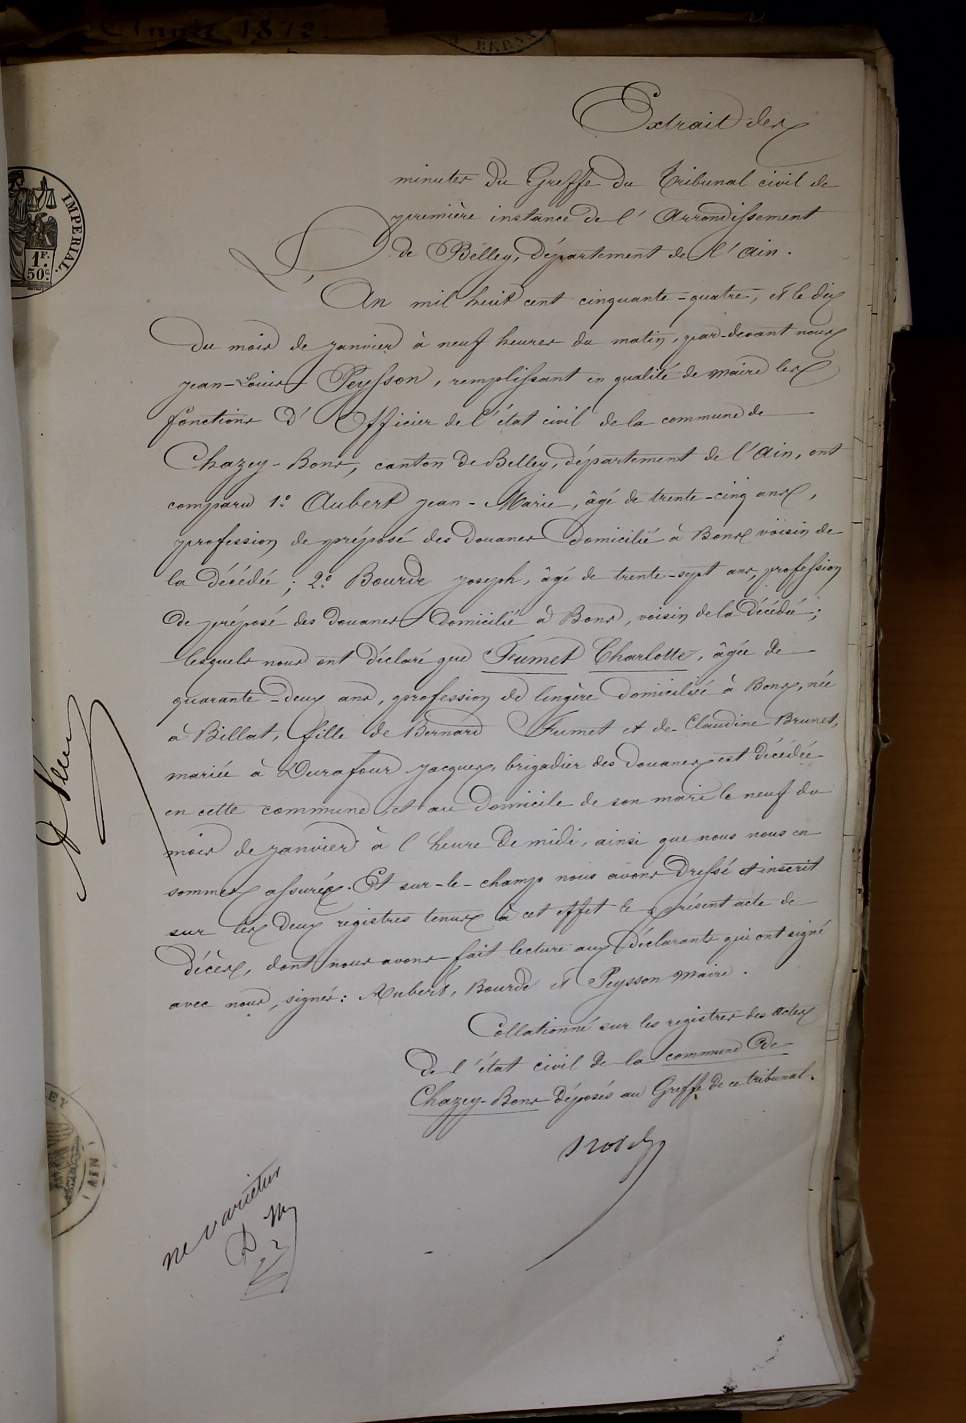 Année 1872.
Extrait des
minutes du Greffe du Tribunal civil de
première instance de l'Arrondissement
de Belley, département de l'Ain.
IMPERIAL.
1F.
50c.
L'An mil huit cent cinquante-quatre, et le dix
du mois de janvier à neuf heures du matin, par-devant nous
Jean-Louis Peysson, remplissant en qualité de Maire les
fonctions d'Officier de l'état civil de la commune de
Chazey-Bons, canton de Belley, département de l'Ain, ont
comparu 1° Aubert Jean-Marie, âgé de trente-cinq ans,
profession de préposé des Douanes domicilié à Bons voisin de
la décédée; 2° Bourde Joseph, âgé de trente-sept ans, profession
de préposé des douanes domicilié à Bons, voisin de la décédée;
lesquels nous ont déclaré que Fumet Charlotte, âgée de
quarante-deux ans, profession de lingère domiciliée à Bons, née
à Billat, fille de Bernard Fumet et de Claudine Brunet,
mariée à Durafour Jacques, brigadier des douanes est décédée
en cette commune et au domicile de son mari le neuf du
mois de janvier à l'heure de midi, ainsi que nous nous en
sommes assurés. Et sur-le-champ nous avons dressé et inscrit
sur les deux registres tenus à cet effet le présent acte de
décès, dont nous avons fait lecture aux déclarants qui ont signé
avec nous, signés: Aubert, Bourde et Peysson Maire.
Collationné sur les registres des actes
de l'état civil de la commune de
Chazey-Bons déposés au Greffe de ce tribunal.
ne varietur
AIN